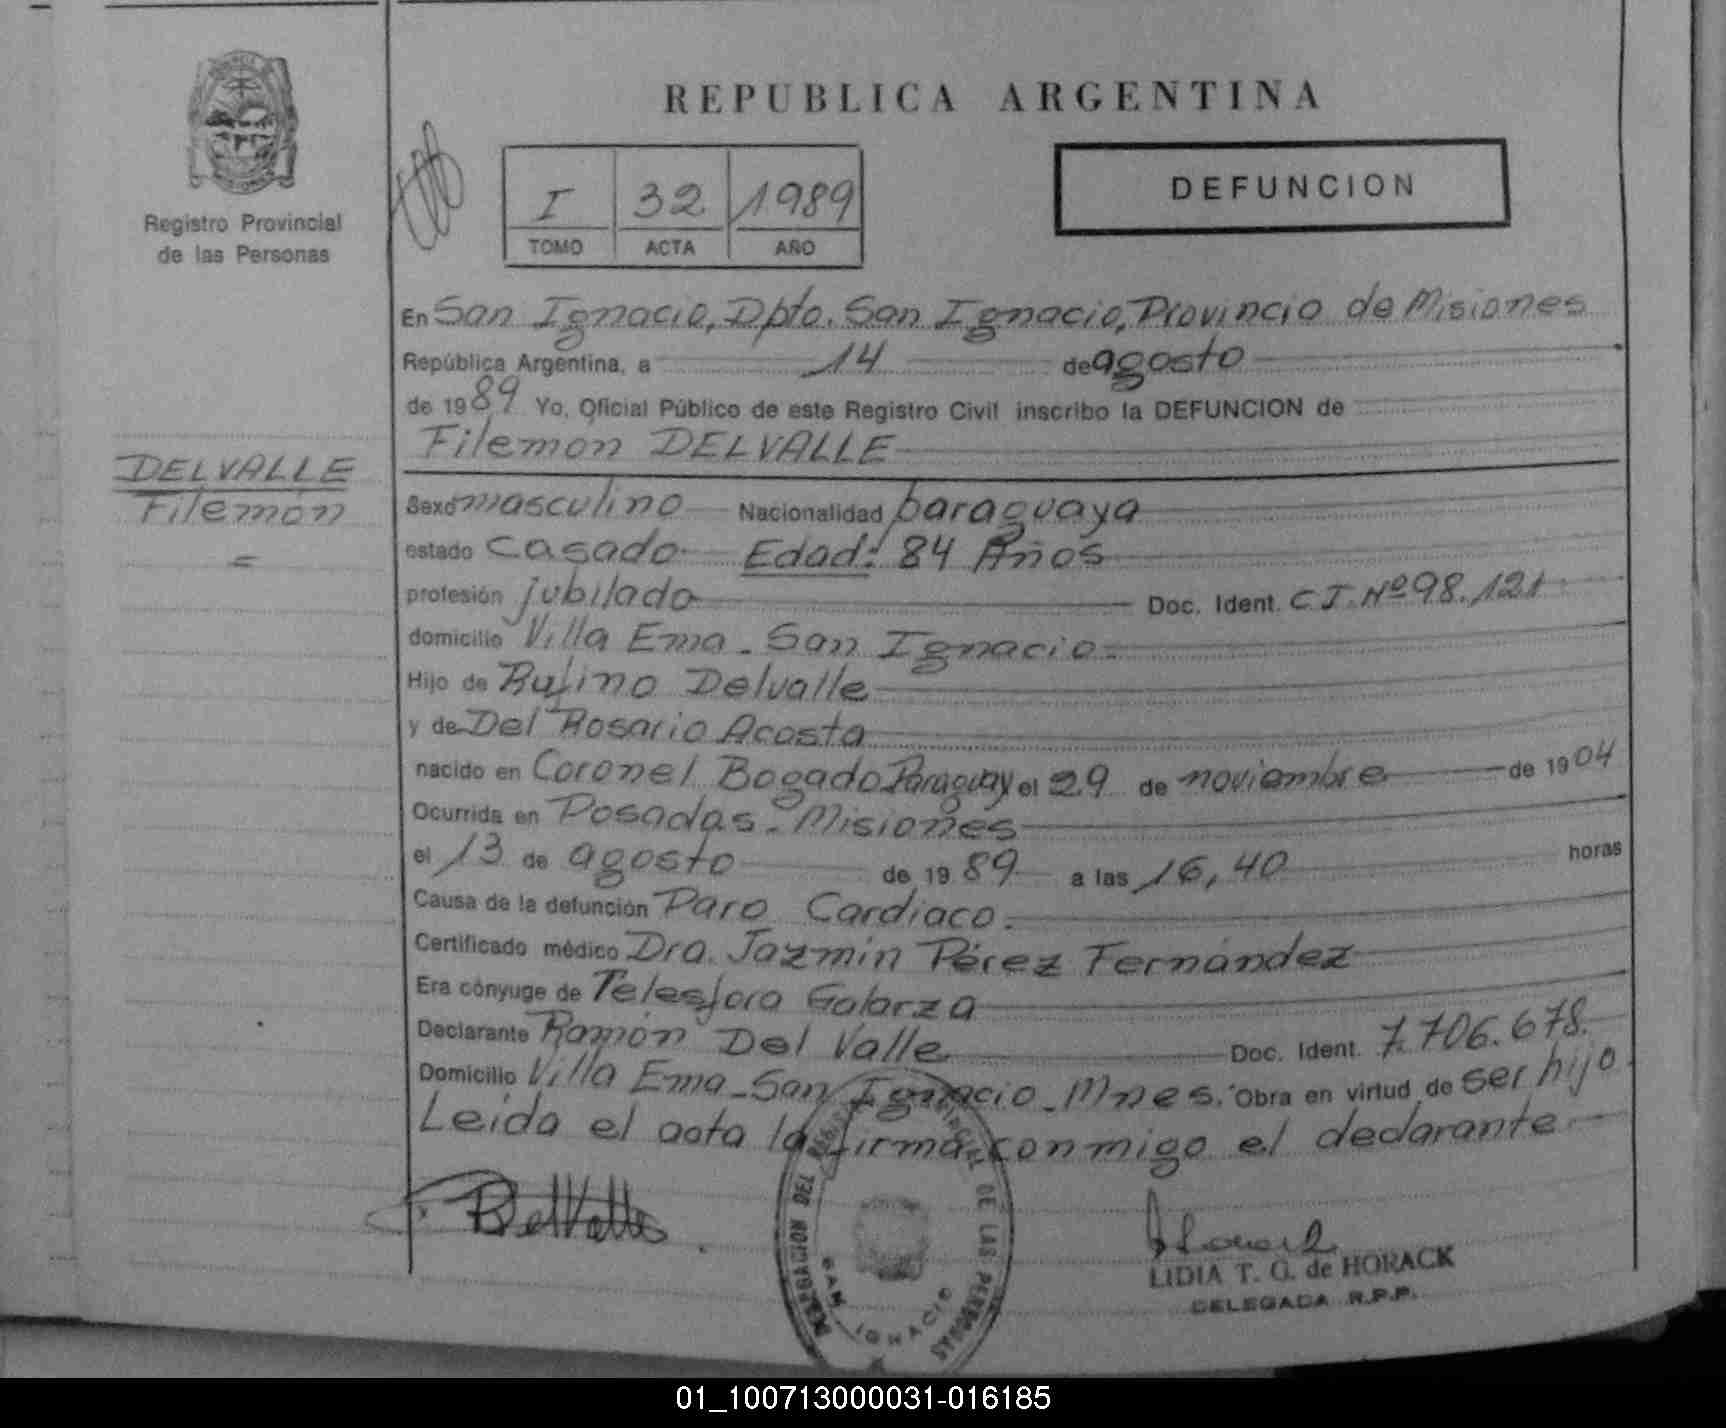 REPUBLICA ARGENTINA
Registro Provincial
de las Personas
I 32 1989
TOMO ACTA AÑO
DEFUNCION
En San Ignacio, Dpto. San Ignacio, Provincia de Misiones
República Argentina, a 14 de agosto
de 1989 Yo, Oficial Público de este Registro Civil inscribo la DEFUNCION de
Filemón DELVALLE
DELVALLE
Filemón
=
Sexo masculino Nacionalidad paraguaya
estado Casado Edad: 84 Años
profesión jubilado Doc. Ident. C.I. Nº 98.121
domicilio Villa Ema - San Ignacio.
Hijo de Rufino Delvalle
y de Del Rosario Acosta
nacido en Coronel Bogado Paraguay el 29 de noviembre de 1904
Ocurrida en Posadas - Misiones
el 13 de agosto de 1989 a las 16,40 horas
Causa de la defunción Paro Cardiaco.
Certificado médico Dra. Jazmín Pérez Fernández
Era cónyuge de Telesfora Galarza
Declarante Ramón Del Valle Doc. Ident. 7.706.678.
Domicilio Villa Ema - San Ignacio - Mnes. Obra en virtud de ser hijo
Leida el acta la firma conmigo el declarante
DelValle
DELEGACION DEL REGISTRO PROVINCIAL DE LAS PERSONAS
SAN IGNACIO
LIDIA T. G. de HORACK
DELEGADA R.P.P.
01_100713000031-016185